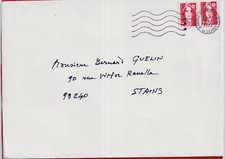 Monsieur Bernard GUELIN
90 rue Victor Renelle
93240
STAINS